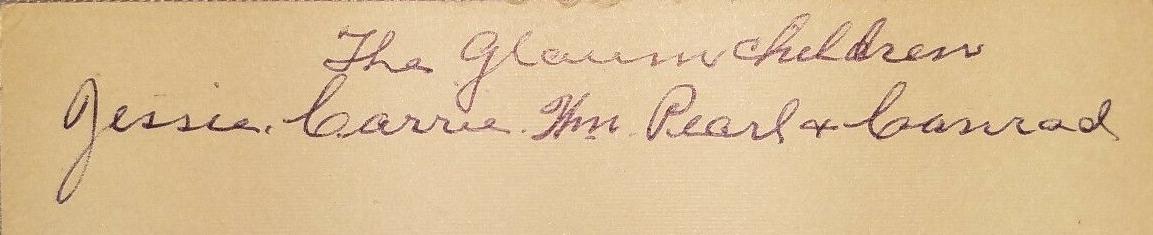 The Glaum Children
Jessie. Carrie. Wm. Pearl + Conrad